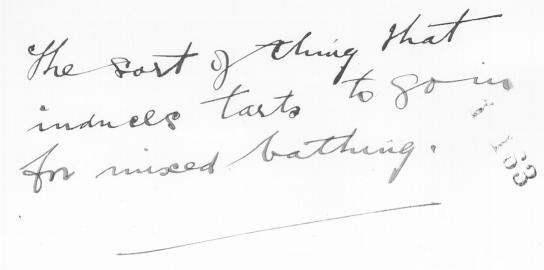 The sort of thing that
induces tarts to go in
for mixed bathing.
163